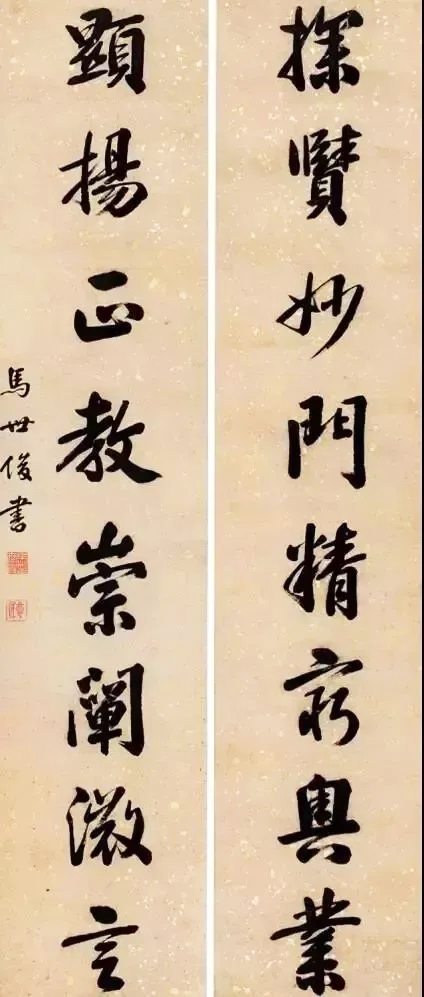 探賢妙門精窮奧業
顯揚正教崇闡微言
馬世俊書